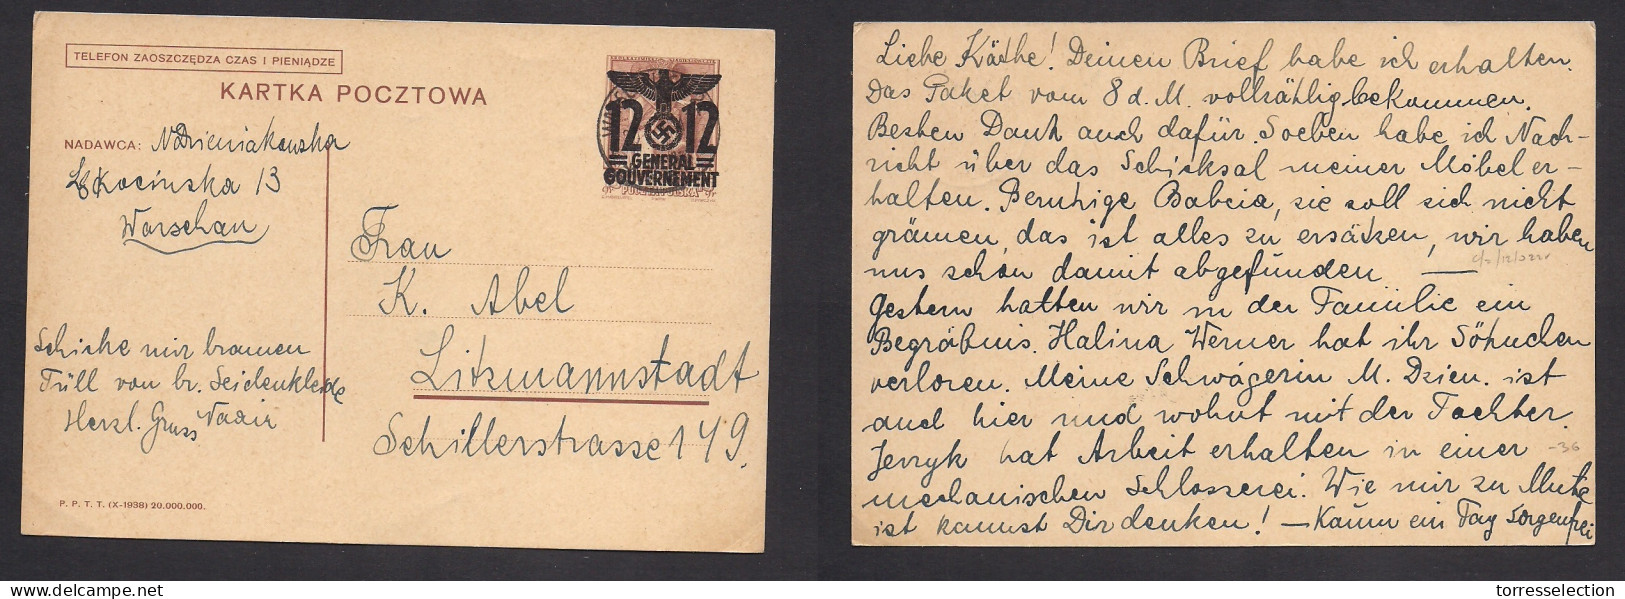 TELEFON ZAOSZCZĘDZA CZAS I PIENIĄDZE
KARTKA POCZTOWA
NADAWCA: N. Dzieniakowska
Kocinska 13
Warschau
12 12
GENERAL
GOUVERNEMENT
Frau
K. Abel
Litzmannstadt
Schillerstrasse 149.
Schicke mir braunen
Tüll von br. Seidenkleide
Herzl. Gruss
P. P. T. T. (X-1938) 20.000.000.
Liebe Käthe! Deinen Brief habe ich erhalten.
Das Paket vom 8 d. M. vollzählig bekommen.
Besten Dank auch dafür. Soeben habe ich Nach-
richt über das Schicksal meiner Möbel er-
halten. Beruhige Babcia, sie soll sich nicht
grämen, das ist alles zu ersätzen, wir haben
uns schon damit abgefunden —
Gestern hatten wir in der Familie ein
Begräbnis. Halina Werner hat ihr Söhnchen
verloren. Meine Schwägerin M. Dzien. ist
auch hier und wohnt mit der Tochter.
Jerzyk hat Arbeit erhalten in einer
mechanischen Schlosserei. Wie mir zu Mute
ist kannst Dir denken! — Kaum ein Tag Sorgenfrei
torresselection